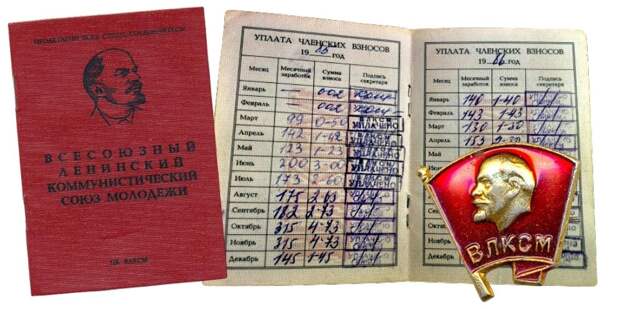 ПРОЛЕТАРИИ ВСЕХ СТРАН, СОЕДИНЯЙТЕСЬ!
ВСЕСОЮЗНЫЙ
ЛЕНИНСКИЙ
КОММУНИСТИЧЕСКИЙ
СОЮЗ МОЛОДЕЖИ
ЦК ВЛКСМ
УПЛАТА ЧЛЕНСКИХ ВЗНОСОВ
19 85 год
Месяц Месячный заработок Сумма взноса Подпись секретаря
Январь — 002
Февраль — 002
Март 99 0-50 УПЛАЧЕНО
Апрель 142 УПЛАЧЕНО
Май 123 1-23 УПЛАЧЕНО
Июнь 200 3-00 УПЛАЧЕНО
Июль 173 2-60 УПЛАЧЕНО
Август 175 2-63
Сентябрь 182 2-73
Октябрь 315 4-73
Ноябрь 315 4-73
Декабрь 145 1-45
УПЛАТА ЧЛЕНСКИХ ВЗНОСОВ
19 86 год
Месяц Месячный заработок Сумма взноса Подпись секретаря
Январь 140 1-40
Февраль 143 1-43
Март 130 1-30
Апрель 153
Май
Июнь
Июль
Август
Сентябрь
Октябрь
Ноябрь
Декабрь
ВЛКСМ